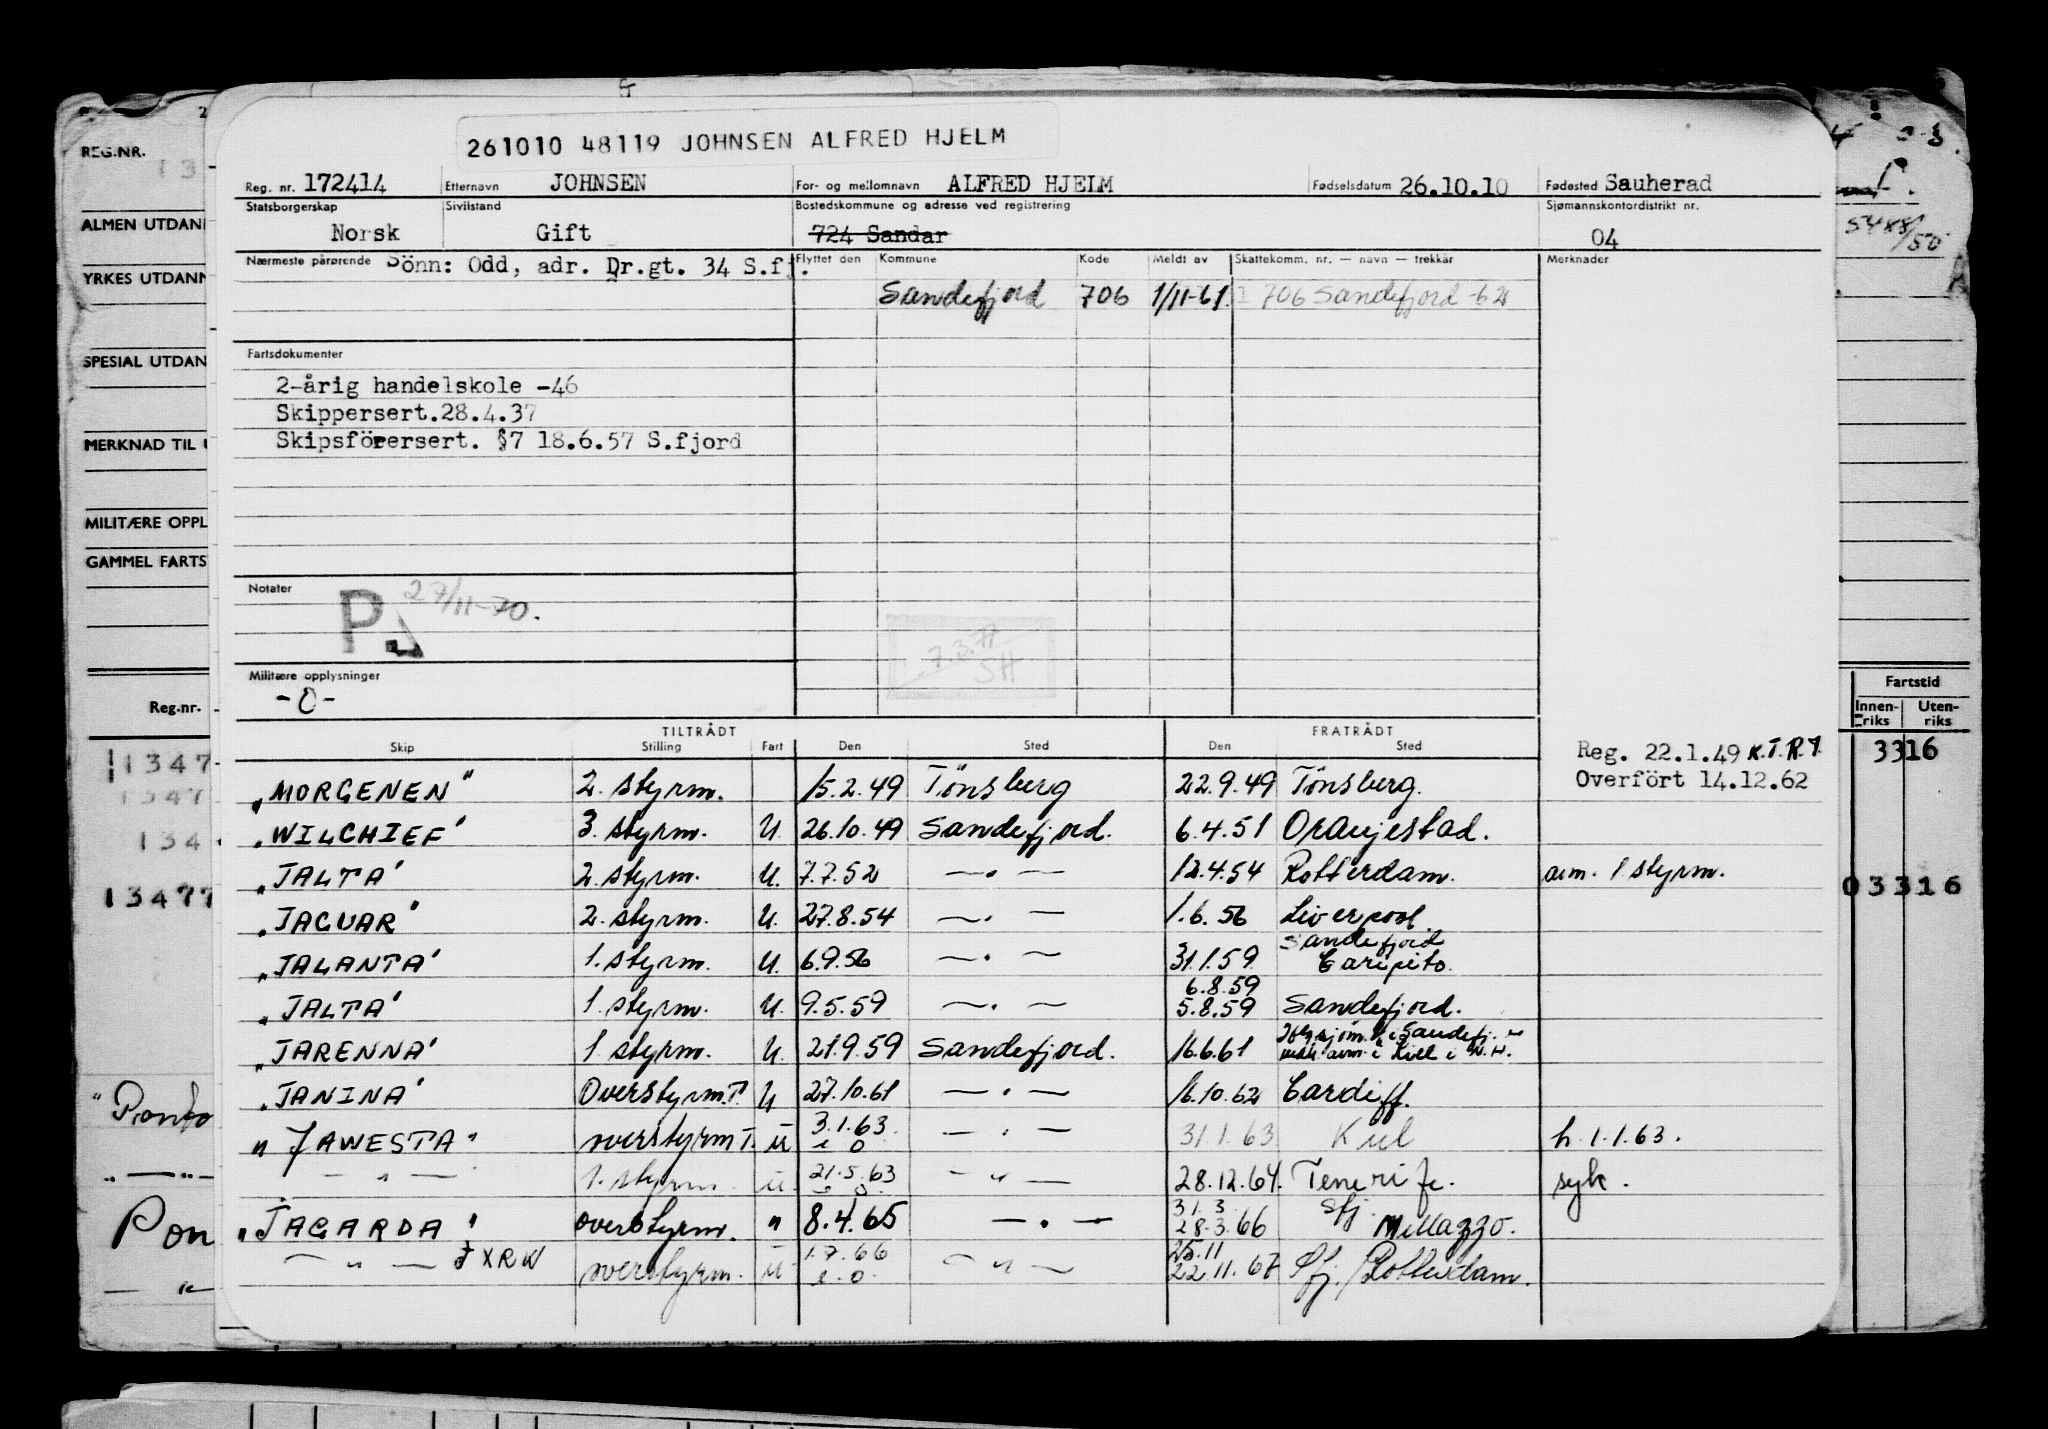 261010 48119 JOHNSEN ALFRED HJELM
Reg. nr. 172414 Etternavn JOHNSEN For- og mellomnavn ALFRED HJELM Fødselsdatum 26.10.10 Fødested Sauherad
Statsborgerskap Sivilstand Bostedskommune og adresse ved registrering Sjømannskontordistrikt nr.
Norsk Gift 724 Sandar 04
Nærmeste pårørende Sönn: Odd, adr. Dr.gt. 34 S.fj. Flyttet den Kommune Kode Meldt av Skattekomm. nr. — navn — trekkår Merknader
Sandefjord 706 1/11-61 706 Sandefjord -62
Fartsdokumenter
2-årig handelskole -46
Skippersert.28.4.37
Skipsförersert. §7 18.6.57 S.fjord
Notater
P. 27/11-70.
7.3.77
SH
Militære opplysninger
-0-
TILTRÅDT FRATRÅDT
Skip Stilling Fart Den Sted Den Sted
Reg. 22.1.49 K.T.R.T.
Overfört 14.12.62
"MORGENEN" 2. styrm. 15.2.49 Tönsberg 22.9.49 Tönsberg.
"WILCHIEF" 3. styrm. U. 26.10.49 Sandefjord. 6.4.51 Oranjestad.
"JALTA" 2. styrm. U. 7.7.52 — . — 12.4.54 Rotterdam. avm. 1 styrm.
"JAGUAR" 2. styrm. U. 27.8.54 — . — 1.6.56 Liverpool
"JALANTA" 1. styrm. U. 6.9.56 — . — 31.1.59 Sandefjord Caripito.
"JALTA" 1. styrm. U. 9.5.59 — . — 6.8.59 5.8.59 Sandefjord.
"JARENNA" 1. styrm. U. 21.9.59 Sandefjord. 16.6.61 Sandefj.
avm. i Kiel i
"JANINA" Overstyrm.T. U 27.10.61 — . — 16.10.62 Cardiff.
"JAWESTA" overstyrm T. U 3.1.63 e o — . — 31.1.63 Kiel h. 1.1.63.
— " — 1. styrm. U 21.5.63 — " — 28.12.64. Tenerife. syk.
"JAGARDA" overstyrm. " 8.4.65 — . — 31.3 28.3.66 Sfj. Milazzo.
— " — JXRW overstyrm. U 1.7.66 e.o. — " — 25.11 22.11.67 Sfj./Rotterdam.
REG.NR.
ALMEN UTDAN
YRKES UTDANN
SPESIAL UTDAN
MERKNAD TIL U
MILITÆRE OPPL
GAMMEL FARTS
Reg.nr.
1347
1347
134
13477
"Ponto
Pon
5488/50
Fartstid
Innen-riks Uten-riks
3316
03316